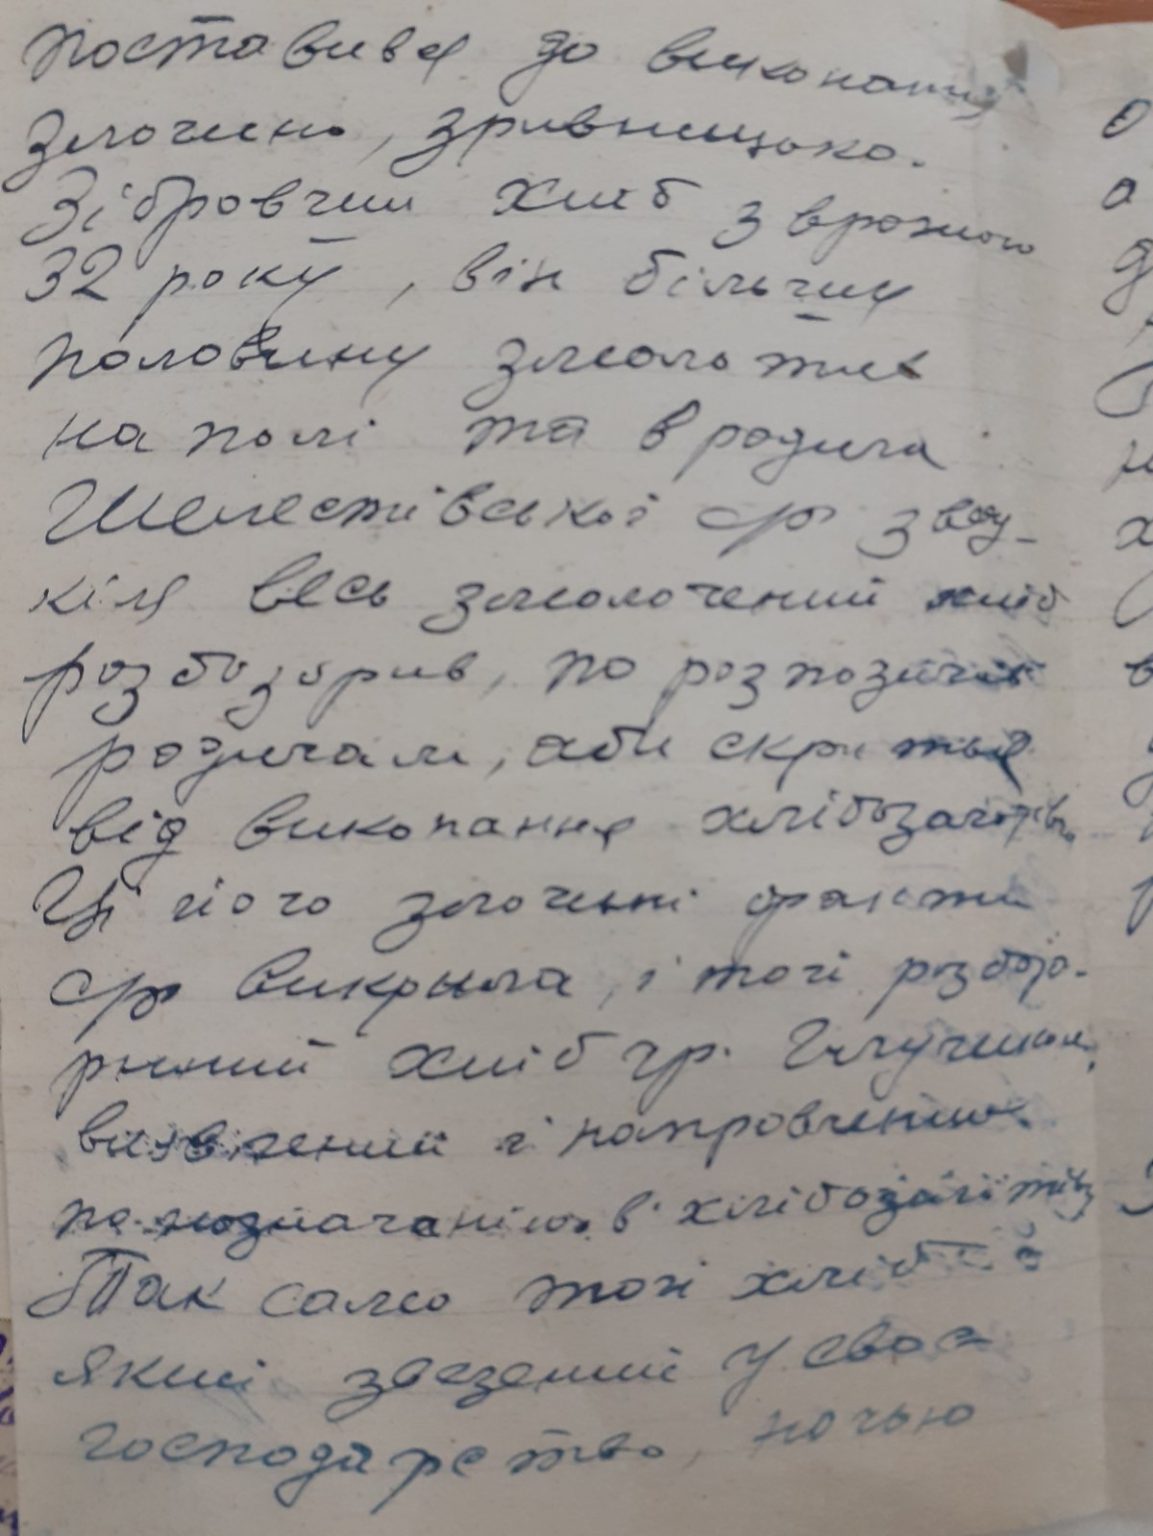 поставився до виконання
злочинно, зривницько.
Зібравчии хліб з врожаю
32 року, він більшу
половину змолотив
на полі та в родича
Шелестівської с/р звід-
кіля весь змолочений хліб
розбазарив, по розпозичав
родичам, аби скритья
від виконання хлібозаготівль
Ці його злочинні факти
с/р викрила, і той розбаза-
рений хліб гр.
виявлений і направлений
по позначенню в хлібозаготівлю
Так само той хліб
який звезений у своє
господарство, ночью
о
а
х
в